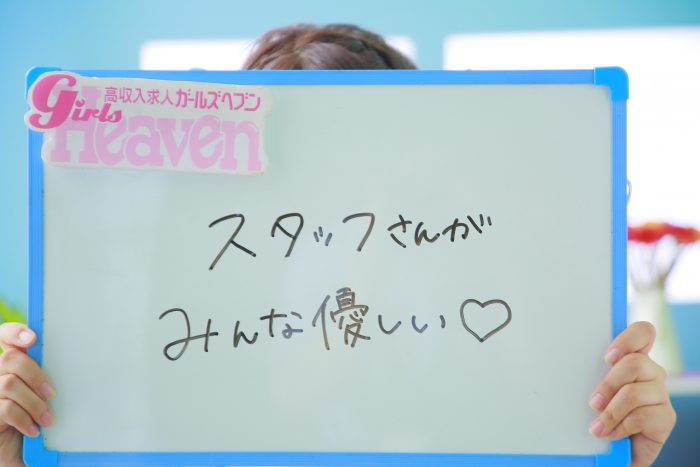 高収入求人ガールズヘブン
Girls
Heaven
スタッフさんが
みんな優しい♡